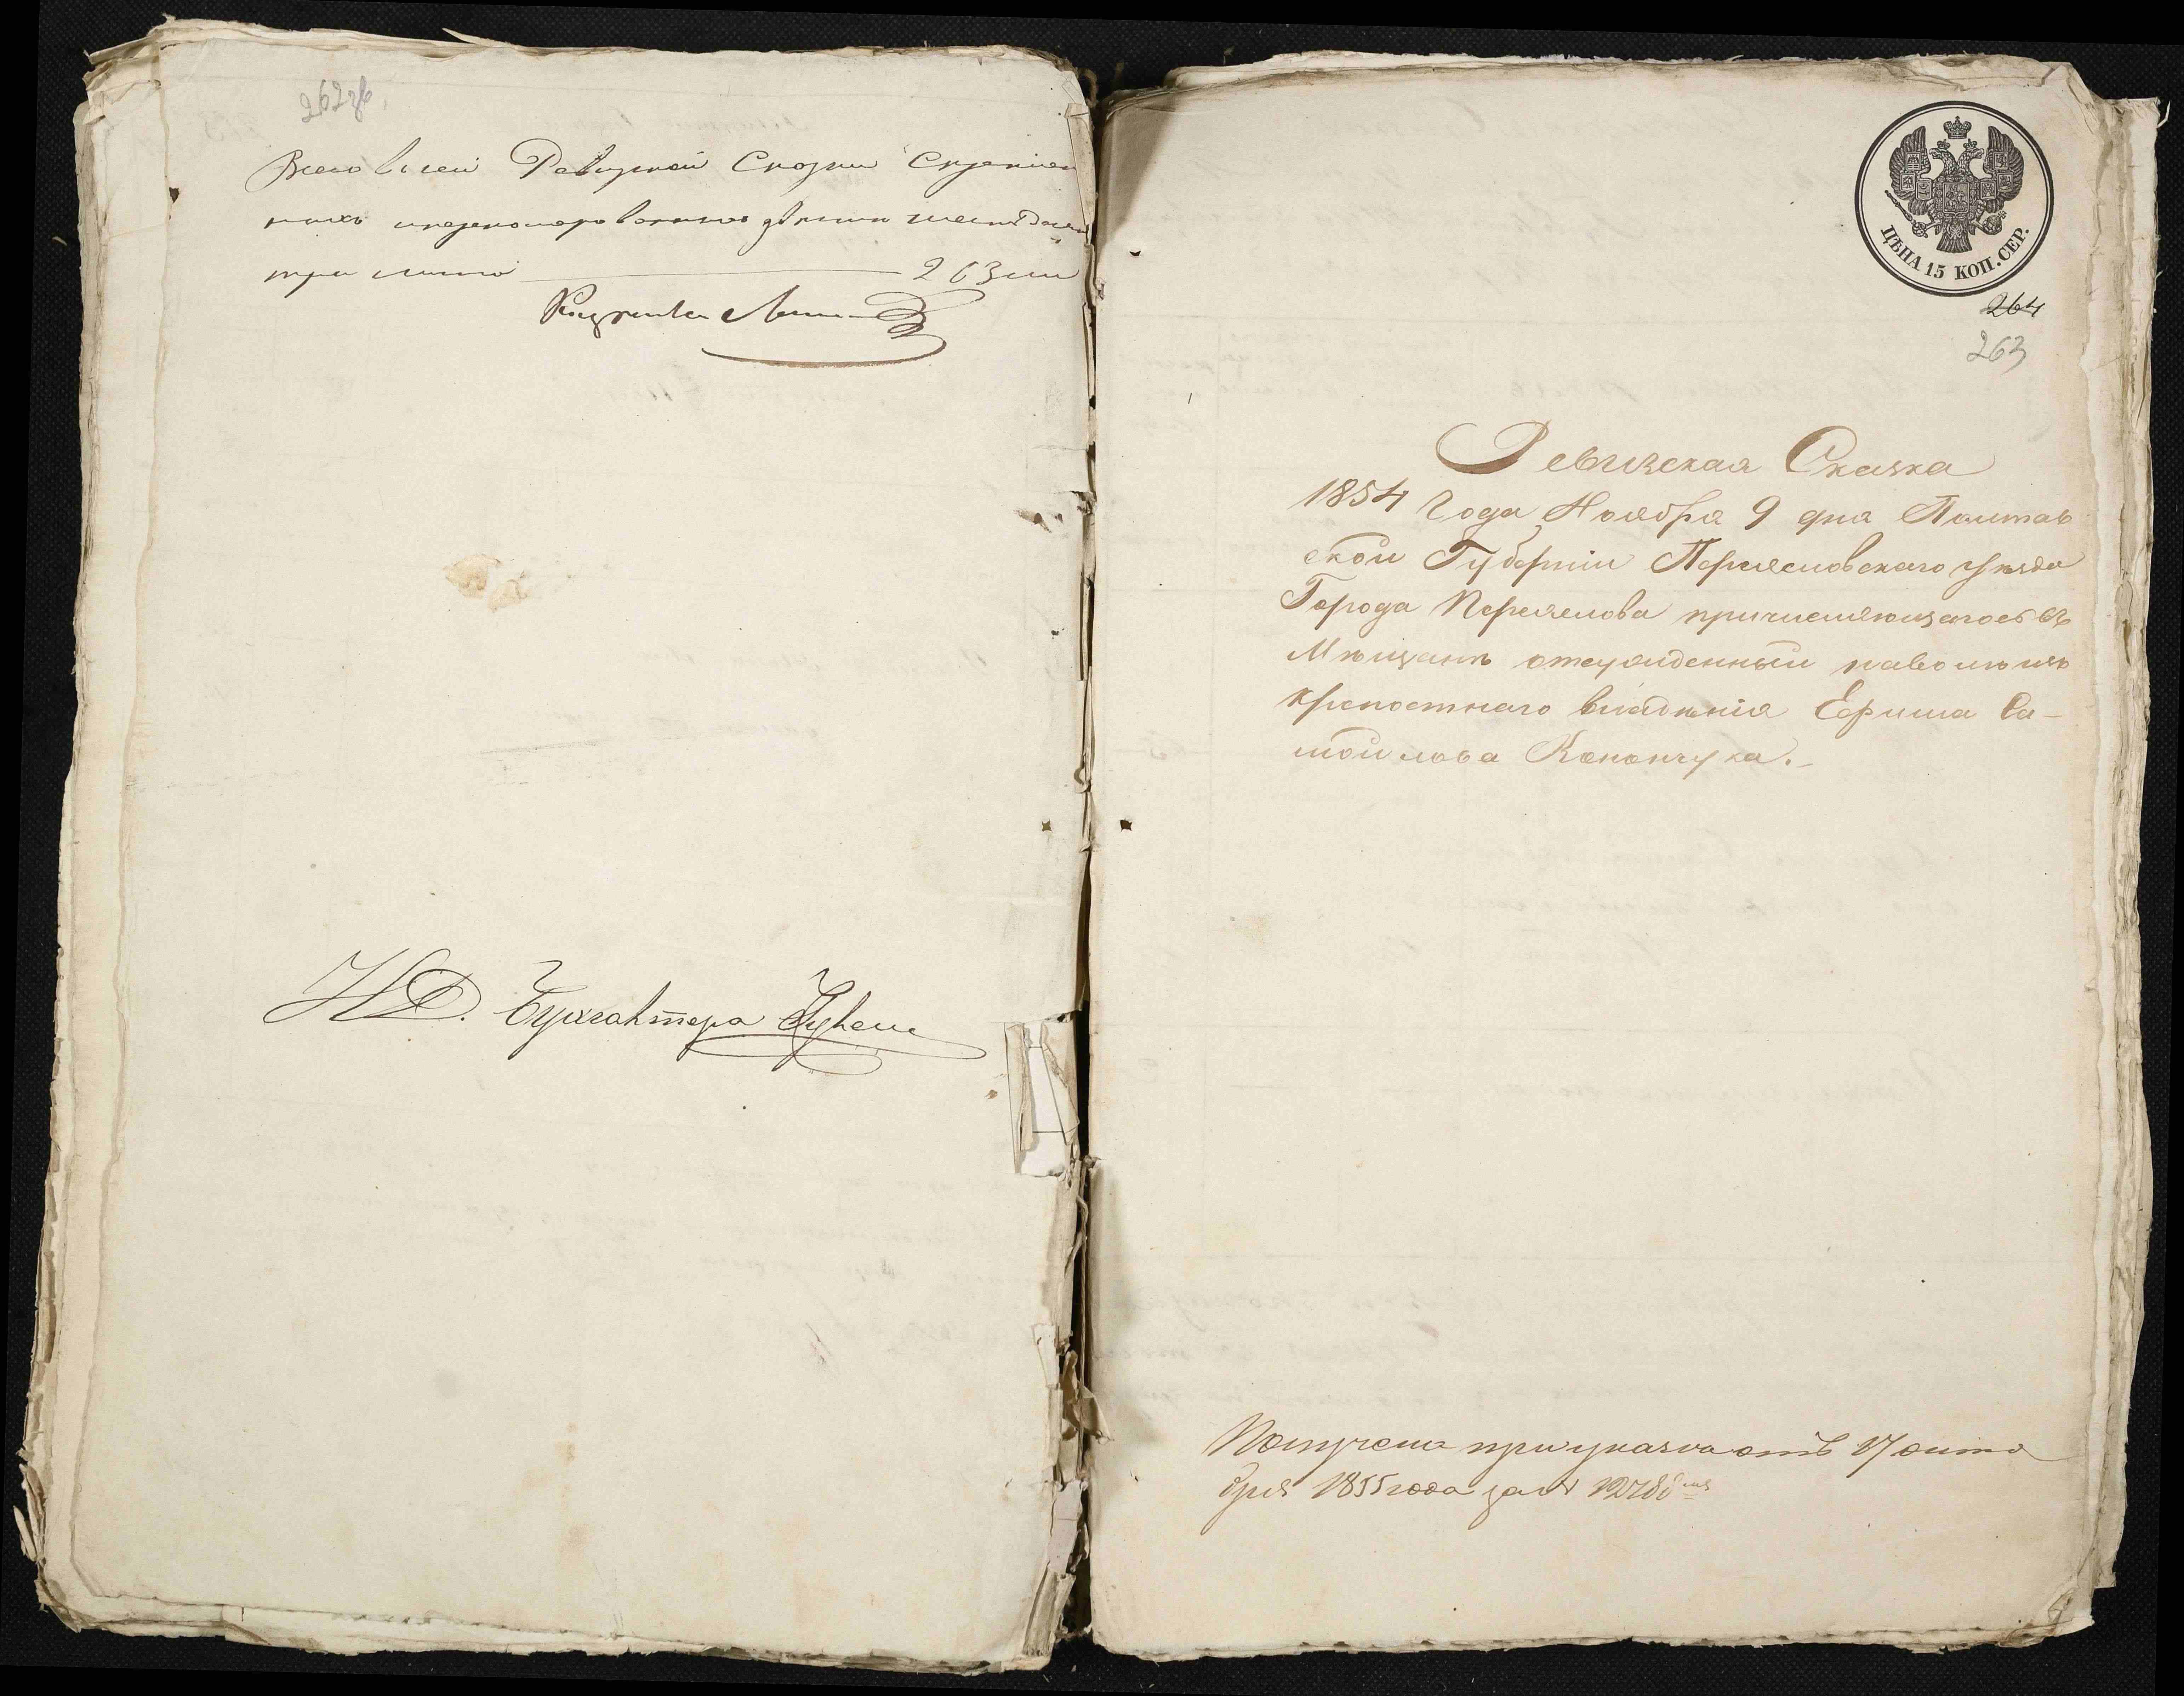 262 зв.
Всего в сей Ревизской Сказки Скрепленныхъ
ныхъ и пронумерованныхъ двести шестьдесятъ
три листа 263 ли
И.Д. Бухгалтера
ЦѢНА 15 КОП. СЕР.
264
263
Ревизская Сказка
1854 Года Ноября 9 дня Полтав
ской Губерніи Переяславскаго уѣзда
Города Переяслова причисляющагось въ
Мѣщане отсужденный на волю изъ
крепостнаго владѣнія Ефима Са-
мойлова Конончука.
Получена при указѣ отъ 17 октя
бря 1855 года за №